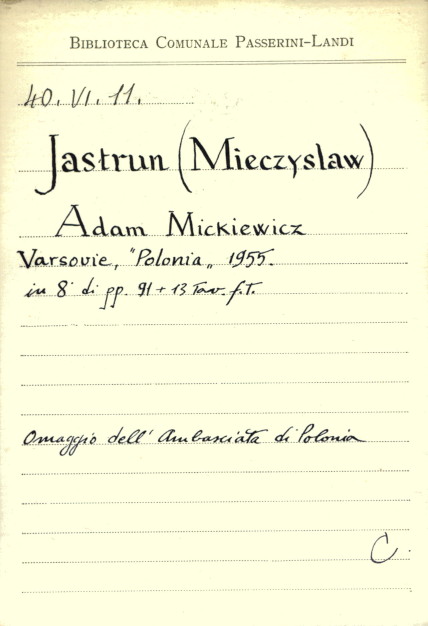 BIBLIOTECA COMUNALE PASSERINI-LANDI
40. VI. 11.
Jastrun (Mieczyslaw)
Adam Mickiewicz
Varsovie, "Polonia„ 1955.
in 8° di pp. 91 + 13 Tav. f.T.
Omaggio dell' Ambasciata di Polonia
C.